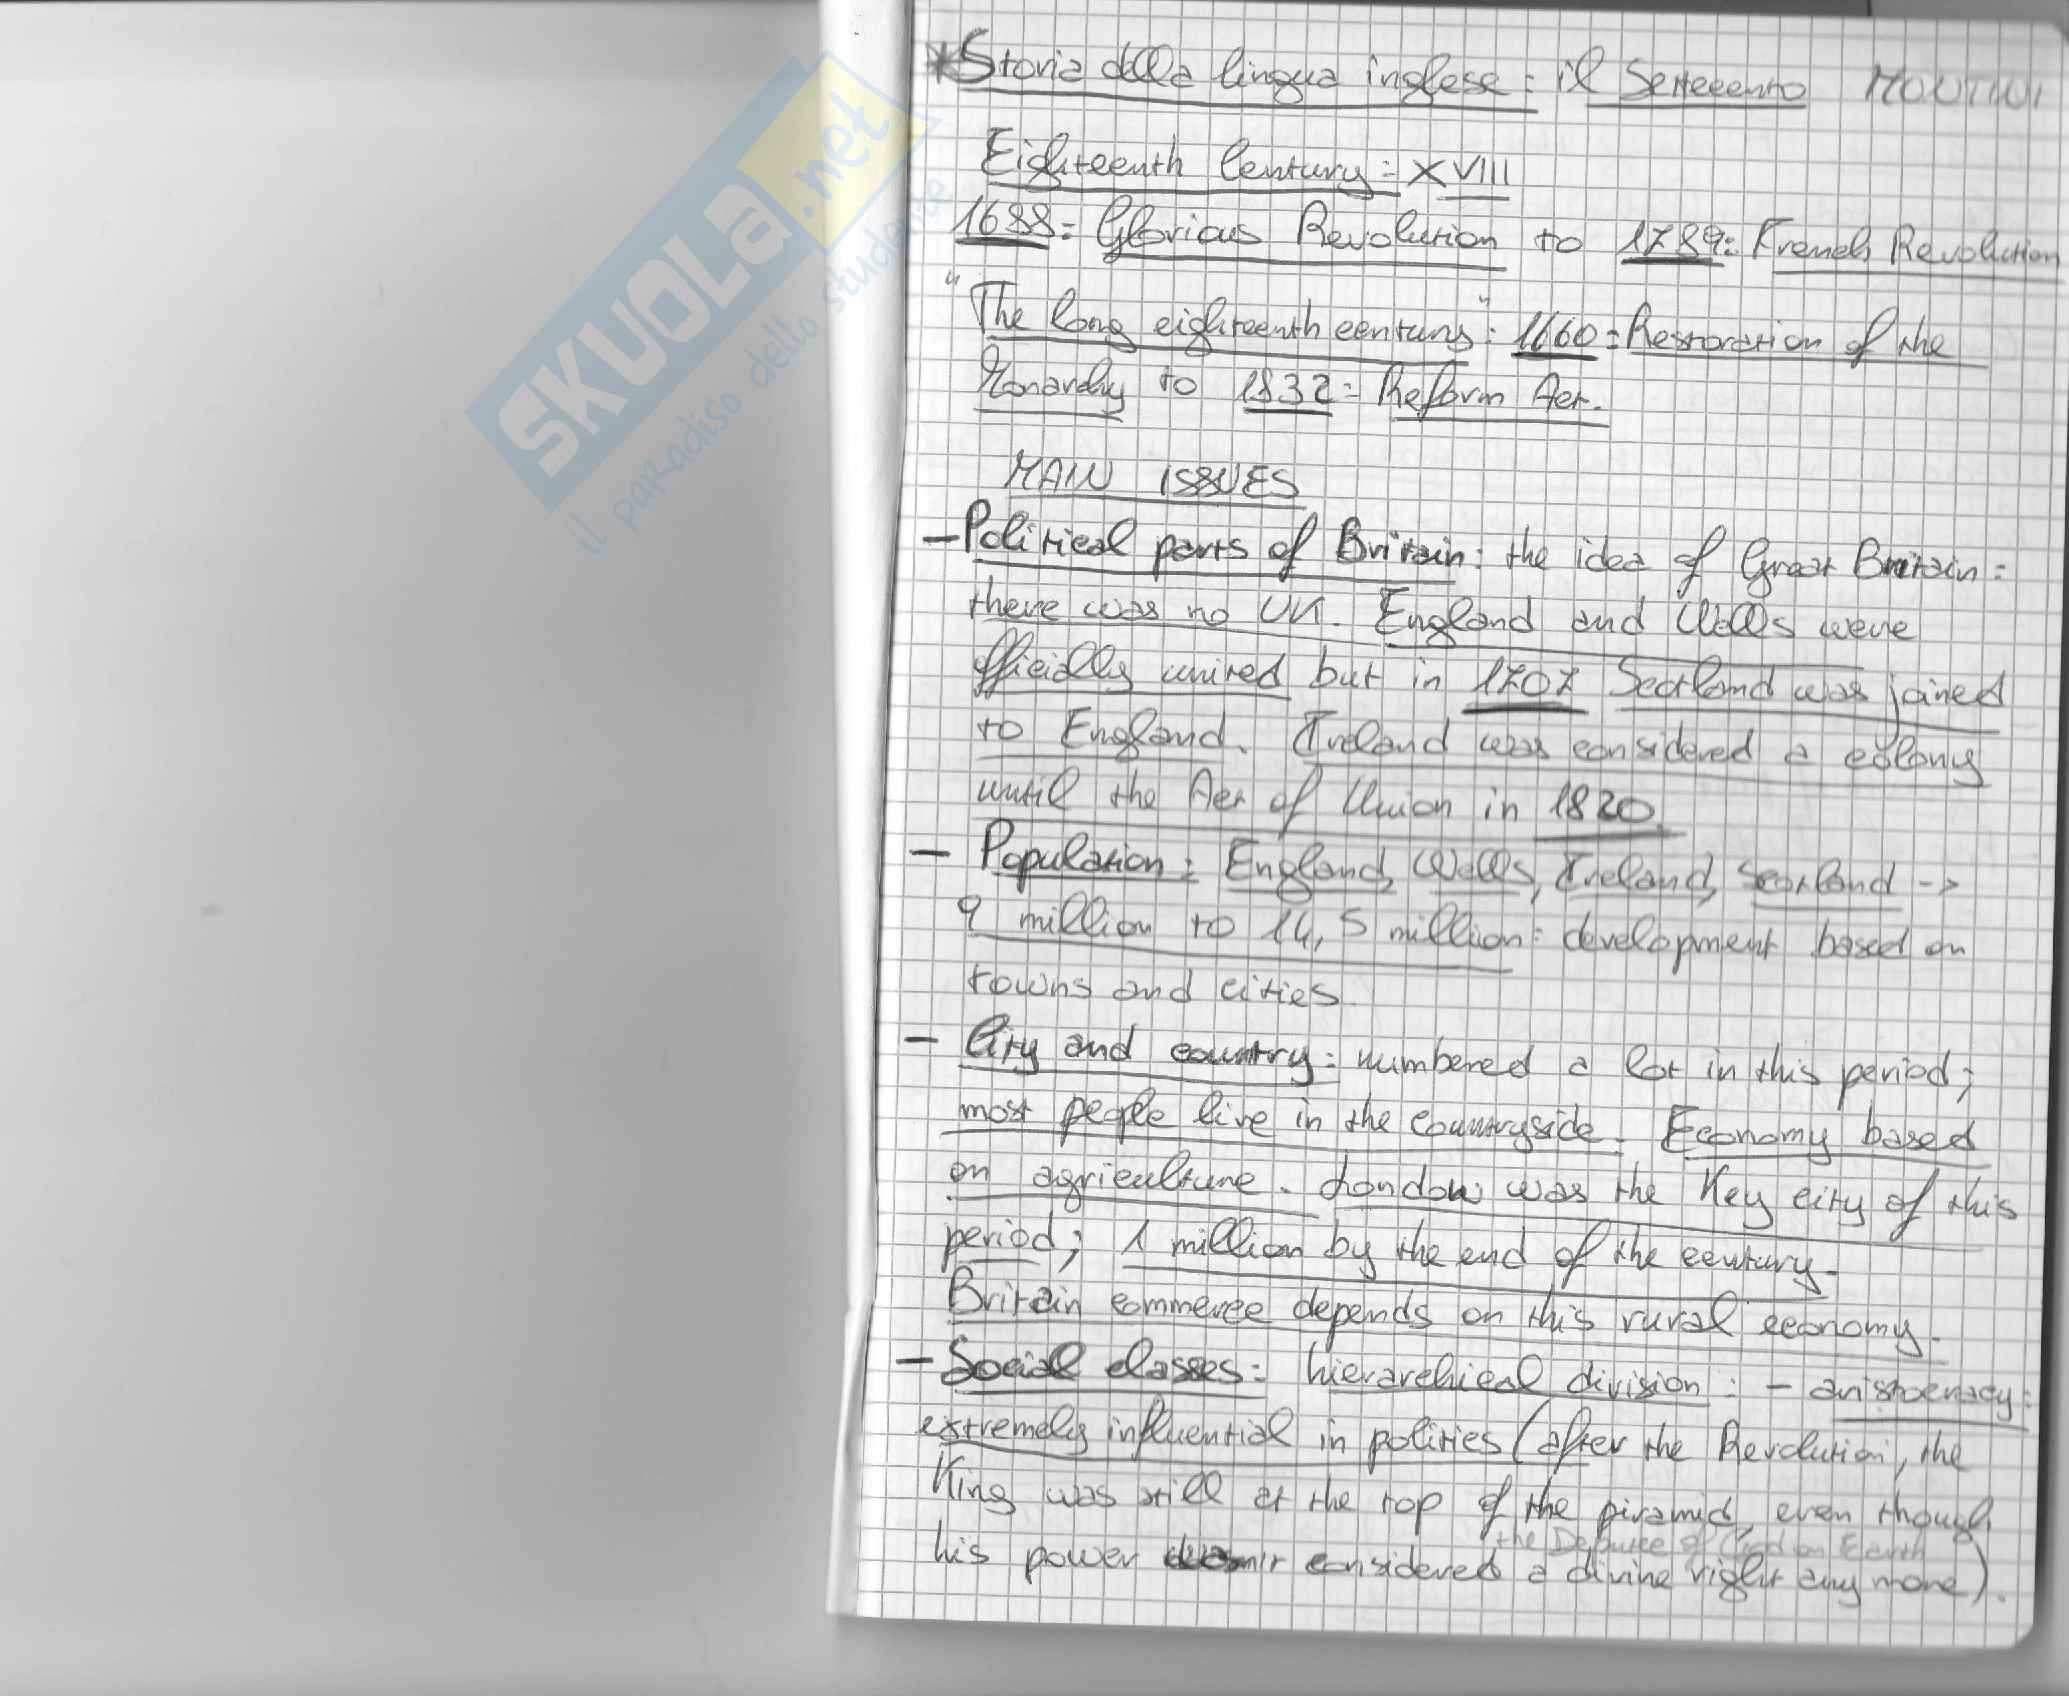 *Storia della lingua inglese: il Settecento
Eighteenth Century: XVIII
1688: Glorious Revolution to 1789: French Revolution
"The long eighteenth century": 1660: Restoration of the
Monarchy to 1832: Reform Act.
MAIN ISSUES
- Political parts of Britain: the idea of Great Britain:
there was no UK. England and Walls were
officially united but in 1707 Scotland was joined
to England. Ireland was considered a colony
until the Act of Union in 1820
- Population: England, Walls, Ireland, Scotland ->
9 million to 14,5 million: development based on
towns and cities
- City and country: numbered a lot in this period;
most people live in the countryside. Economy based
on agriculture. London was the key city of this
period; 1 million by the end of the century.
Britain commerce depends on this rural economy.
- Social classes: hierarchical division: - aristocracy:
extremely influential in politics (after the Revolution, the
King was still at the top of the piramid, even though
the of God on Earth
his power considered a divine right any more).
SKUOLA.net
il paradiso dello studente